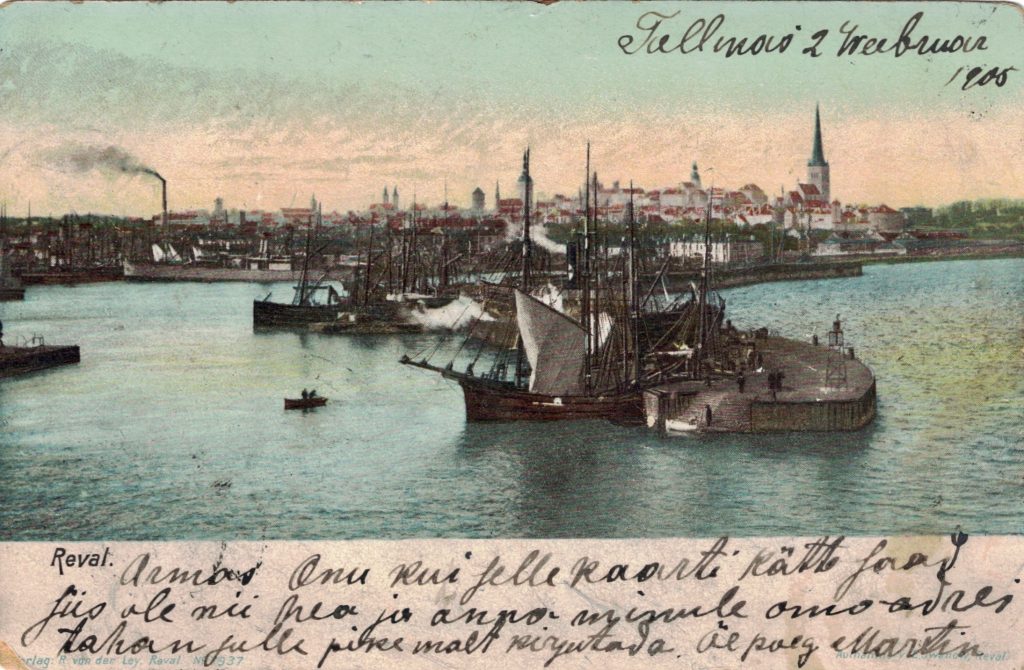 Tallinas 2 Weebruar
1905
Reval.
Armas Onu kui selle kaarti kätte saad
siis ole nii hea ja anna minule oma adres
tahan sulle pikemalt kirjutada. Õe poeg Martin
Verlag: R. von der Ley, Reval. No 7937
Reval.